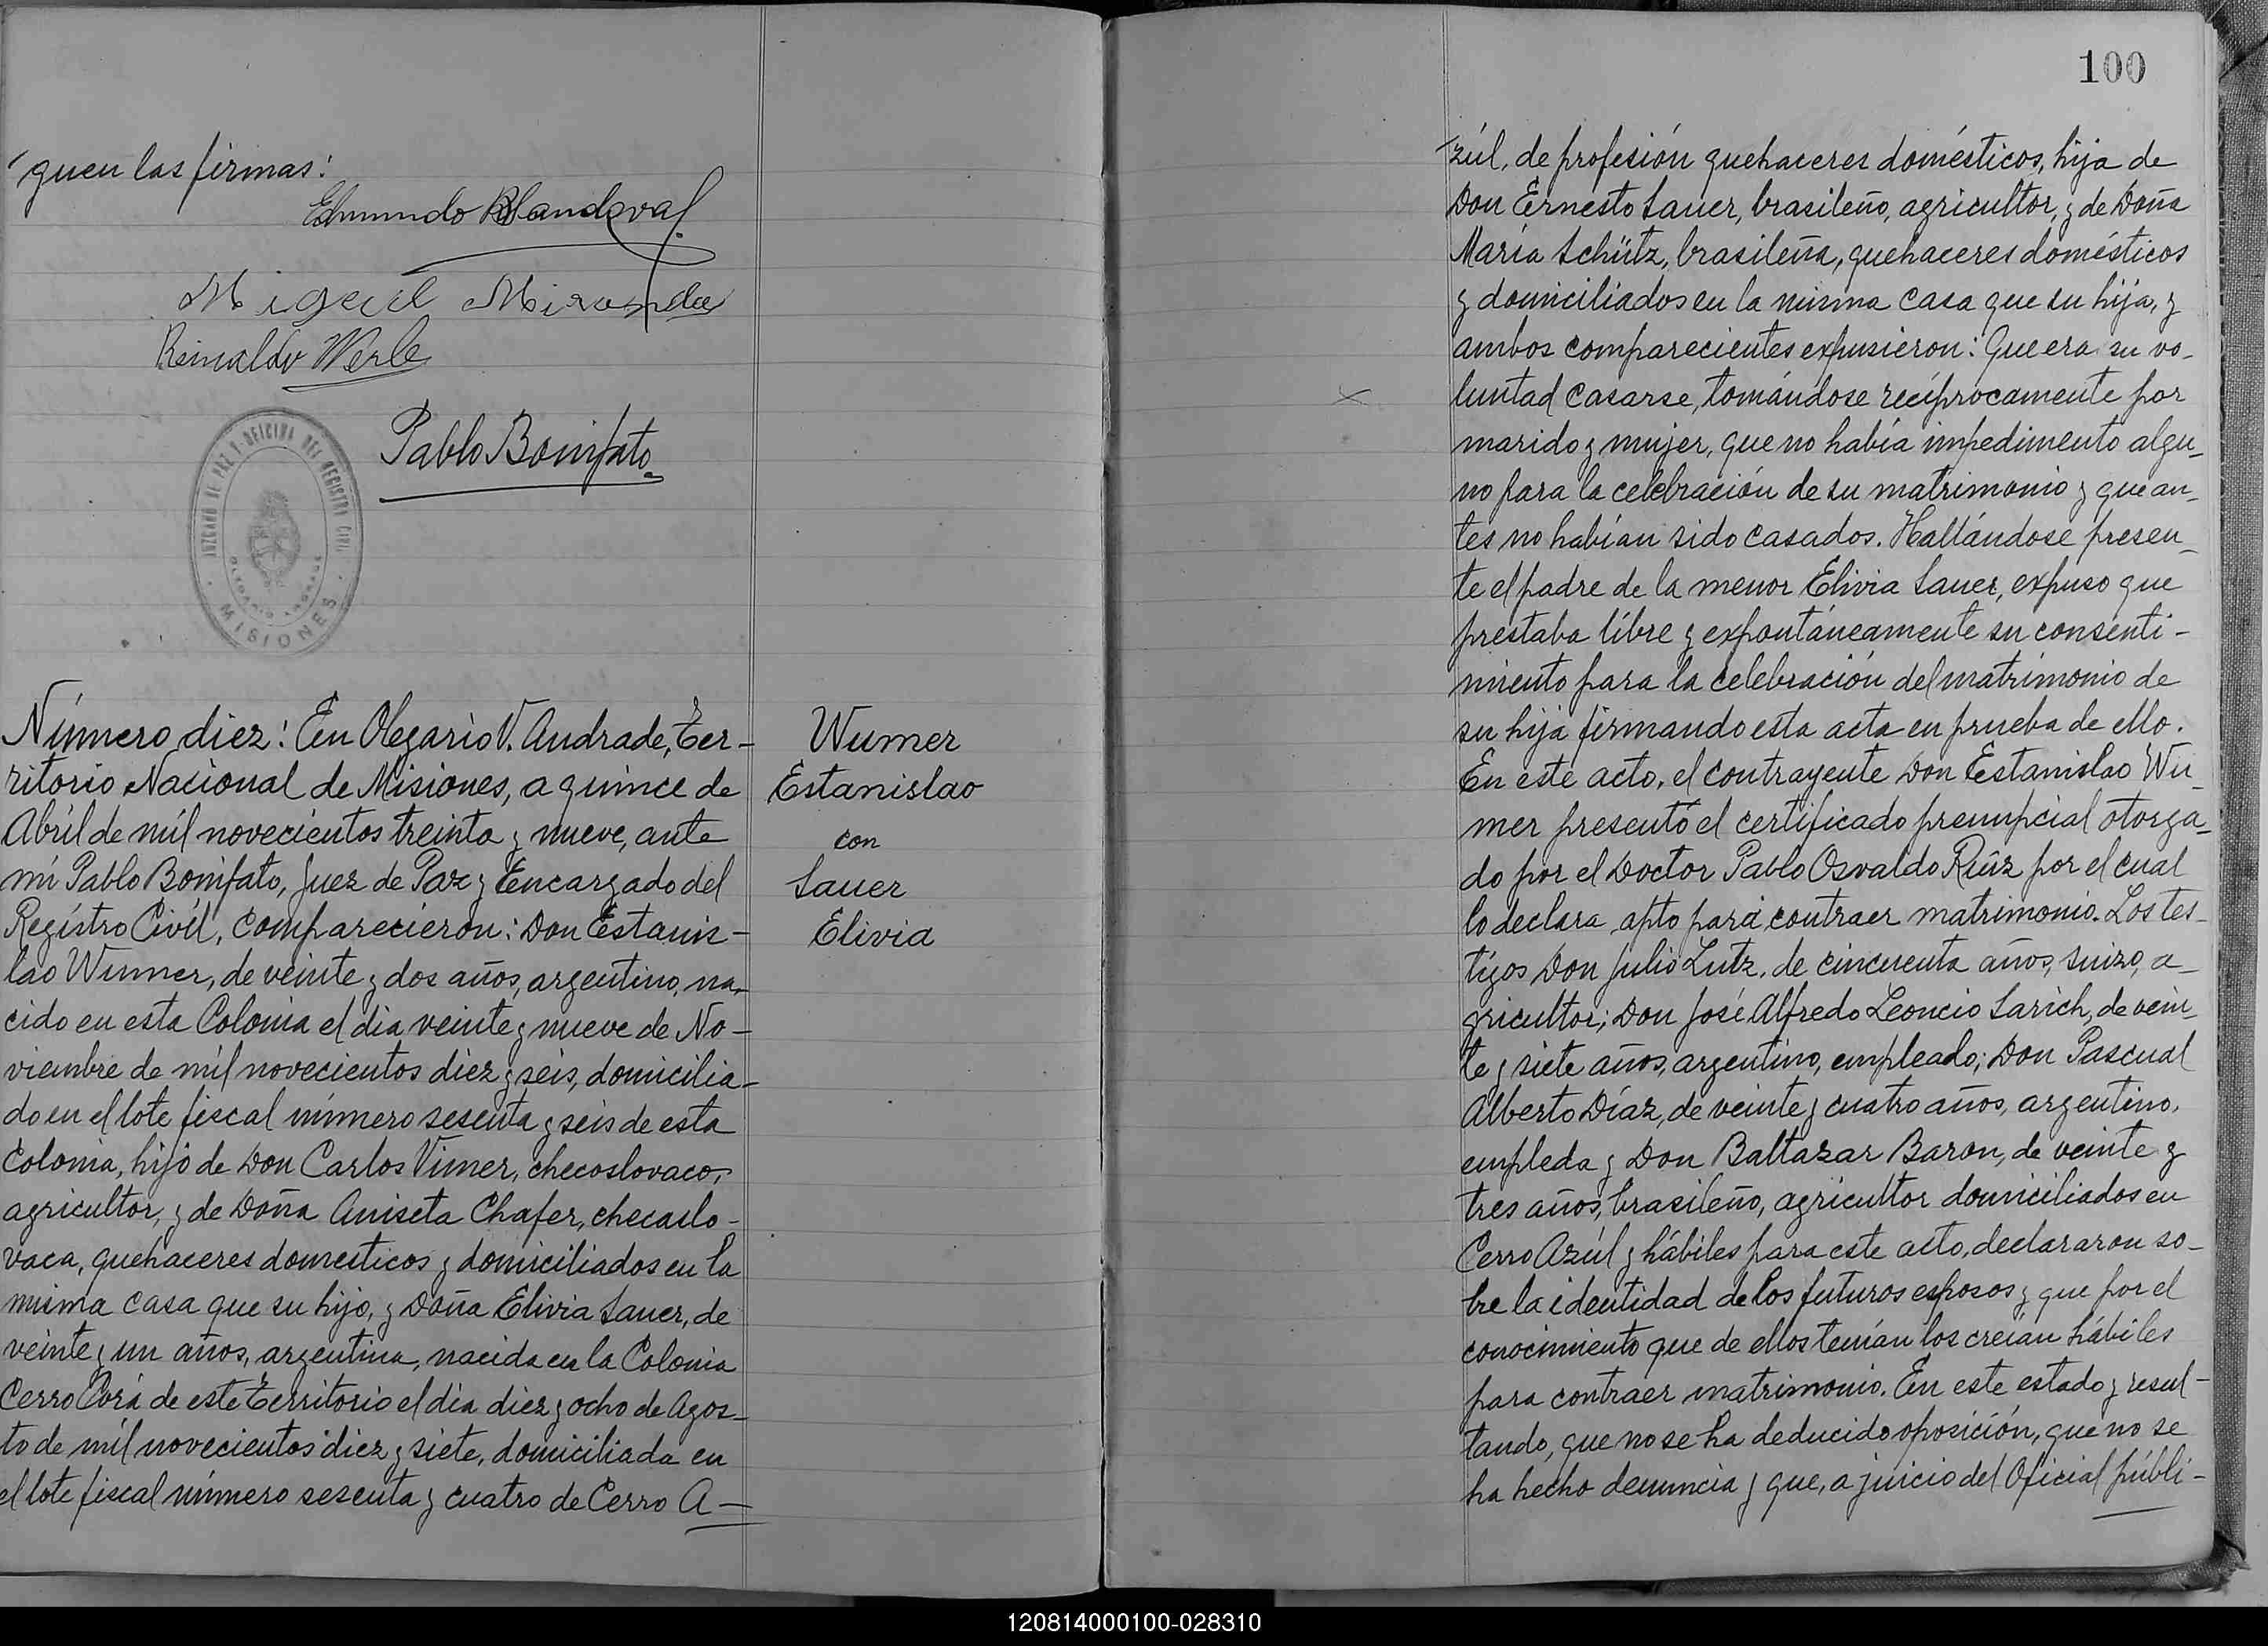 guen las firmas:
Edmundo R Sandoval
Miguel Miranda
Reinaldo Werle
Pablo Bonifato
JUZGADO DE PAZ Y OFICINA DEL REGISTRO CIVIL
MISIONES
Número diez: En Olegario V. Andrade, Ter-
ritorio Nacional de Misiones, a quince de
Abril de mil novecientos treinta y nueve, ante
mí Pablo Bonifato, Juez de Paz y Encargado del
Regístro Civíl, comparecieron: Don Estanis-
lao Wumer, de veinte y dos años, argentino, na-
cido en esta Colonia el día veinte y nueve de No-
viembre de mil novecientos diez y seis, domicilia-
do en el lote fiscal número sesenta y seis de esta
Colonia, hijo de Don Carlos Vimer, checoslovaco,
agricultor, y de Doña Aniseta Chafer, checaslo-
vaca, quehaceres domesticos y domiciliados en la
misma casa que su hijo, y Doña Elivia Sauer, de
veinte y un años, argentina, nacida en la Colonia
Cerro Corá de este Territorio el día diez y ocho de Agos-
to de mil novecientos diez y siete, domiciliada en
el lote fiscal número sesenta y cuatro de Cerro A-
Wumer
Estanislao
con
Sauer
Elivia
100
zúl, de profesión quehaceres domésticos, hija de
Don Ernesto Sauer, brasileño, agricultor, y de Doña
María Schütz, brasileña, quehaceres domésticos
y domiciliados en la misma casa que su hija, y
ambos comparecientes expusieron: Que era su vo-
luntad casarse, tomándose recíprocamente por
marido y mujer, que no había impedimento algu-
no para la celebración de su matrimonio y que an-
tes no habían sido casados. Hallándose presen-
te el padre de la menor Elivia Sauer, expuso que
prestaba líbre y expontáneamente su consenti-
miento para la celebración del matrimonio de
su hija firmando esta acta en prueba de ello.
En este acto, el contrayente Don Estanislao Wu-
mer presentó el certificado prenupcial otorga-
do por el Doctor Pablo Osvaldo Ruíz por el cual
lo declara apto para contraer matrimonio. Los tes-
tigos Don Julio Lutz, de cincuenta años, suizo, a-
gricultor; Don José Alfredo Leoncio Sarich, de vein-
te y siete años, argentino, empleado; Don Pascual
Alberto Díaz, de veinte y cuatro años, argentino,
empleda y Don Baltazar Baron, de veinte y
tres años, brasileño, agricultor domiciliados en
Cerro Azúl y hábiles para este acto, declararon so-
bre la identidad de los futuros esposos y que por el
conocimiento que de ellos tenían los creían hábiles
para contraer matrimonio. En este estado y resul-
tando, que no se ha deducido oposición, que no se
ha hecho denuncia y que, a juicio del Oficial públi-
120814000100-028310